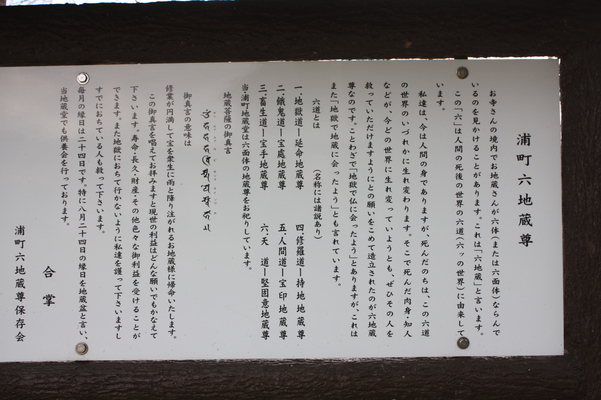 浦町六地蔵尊
お寺さんの境内でお地蔵さんが六体（または六面体）ならんで
いるのを見かけることがあります。これは「六地蔵」と言います。
この「六」は人間の死後の世界の六道（六ッの世界）に由来して
います。
私達は、今は人間の身でありますが、死んだのちは、この六道
の世界のいづれかに生れ変わります。そこで死んだ肉身・知人
などが、今どの世界に生れ変っていようとも、ぜひその人を
救っていただけますようにとの願いをこめて造立されたのが六地蔵
尊なのです。ことわざで「地獄で仏に会ったよう」とありますが、これは
また「地獄で地蔵に会ったよう」とも言れています。
六道とは　（名称には諸説あり）
一、地獄道―延命地蔵尊　四、修羅道―持地地蔵尊
二、餓鬼道―宝處地蔵尊　五、人間道―宝印地蔵尊
三、畜生道―宝手地蔵尊　六、天　道―堅固意地蔵尊
当浦町地蔵堂は六面体の地蔵尊をお祀りしています。
地蔵菩薩の御真言
御真言の意味は
修業が円満して宝を衆生に雨と降り注がれるお地蔵様に帰命いたします。
この御真言を唱えてお拝みますと現世の利益はどんな願いでもかなえて
下さいます。寿命・長久・財産・その他色々な御利益を受けることが
できます。また地獄におちて行かないように私達を護って下さいますし
すでにおちている人も救って下さいます。
毎月の縁日は二十四日です。特に八月二十四日の縁日を地蔵盆と言い、
当地蔵堂でも供養会を行っております。
合掌
浦町六地蔵尊保存会